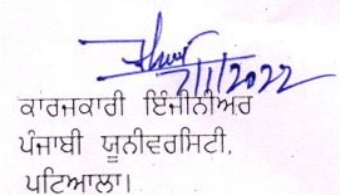 7/1/2022
ਕਾਰਜਕਾਰੀ ਇੰਜੀਨੀਅਰ
ਪੰਜਾਬੀ ਯੂਨੀਵਰਸਿਟੀ,
ਪਟਿਆਲਾ।